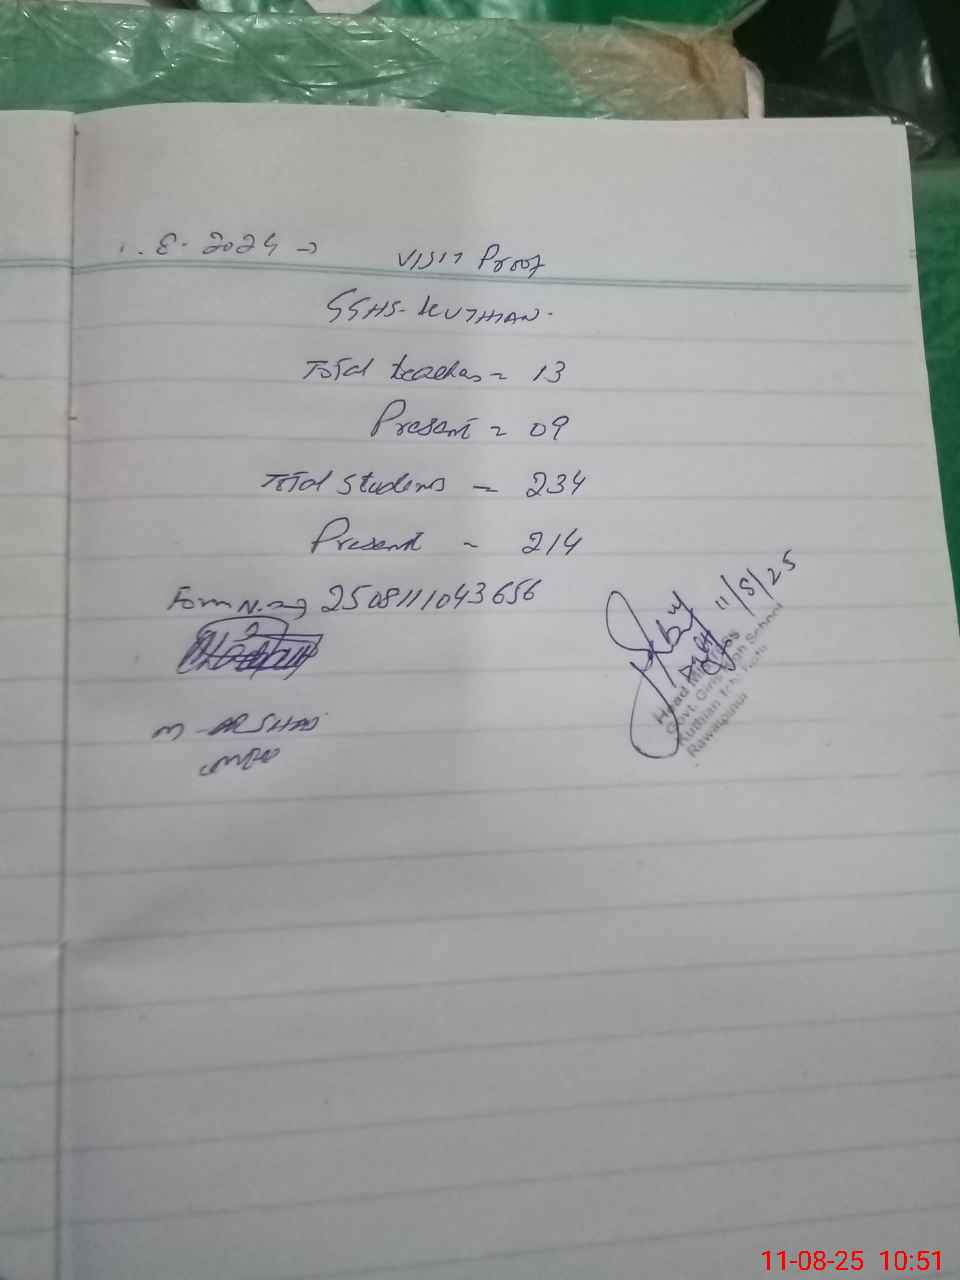 . 8. 2024 → VISIT Proof
GGHS. KUTHIAN.
Total teachers = 13
Present = 09
Total students = 234
Present = 214
Form N. → 2508111043656
11/8/25
Head Mistress
Govt. Girls High School
Kuthian
Rawalpindi
M ARSHAD
11-08-25 10:51